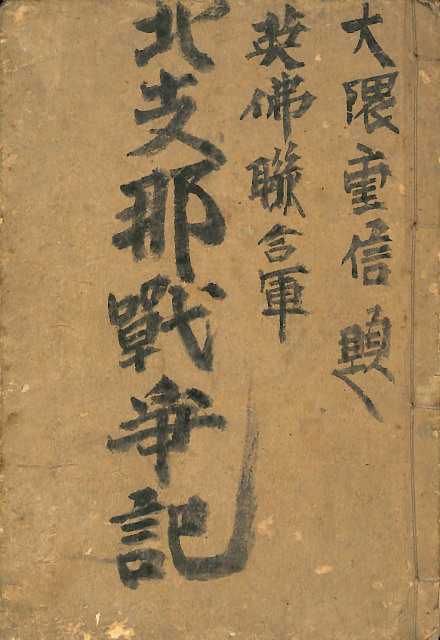 大隈重信題
英佛聯合軍
北支那戰爭記